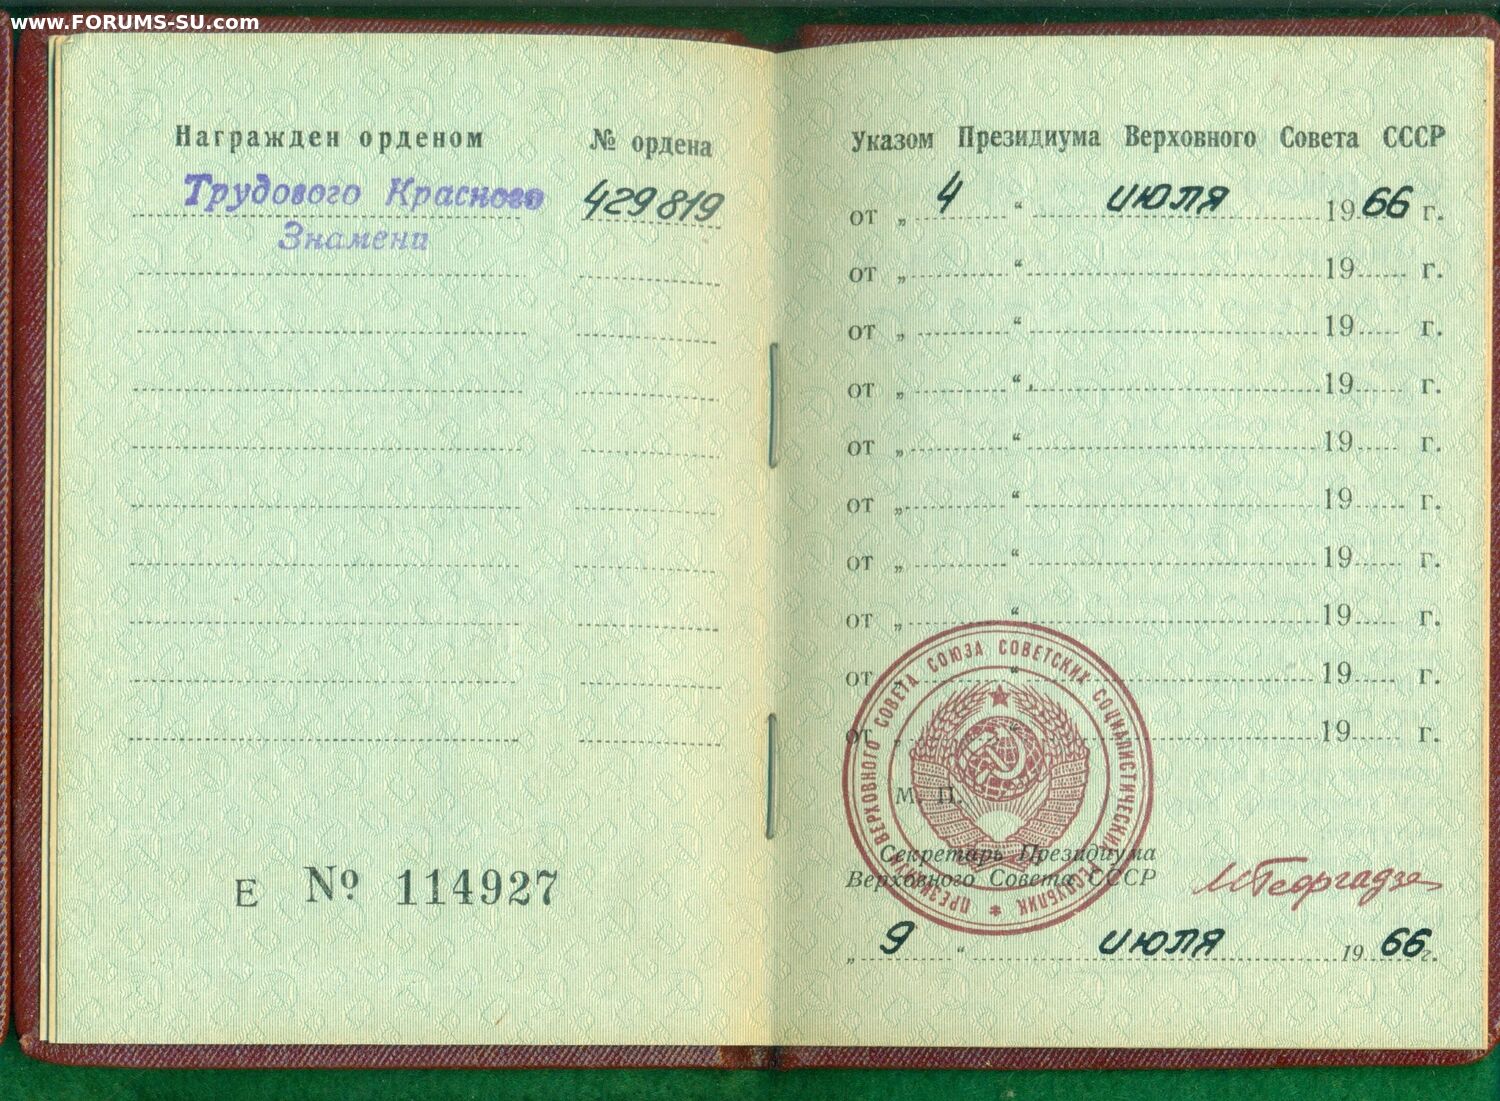 www.FORUMS-SU.com
Награжден орденом
№ ордена
Трудового Красного
429819
Знамени
Е № 114927
Указом Президиума Верховного Совета СССР
от „ 4 “ июля 19 66 г.
от „ “ 19 г.
от „ “ 19 г.
от „ “ 19 г.
от „ “ 19 г.
от „ “ 19 г.
от „ “ 19 г.
от „ “ 19 г.
от „ “ 19 г.
от „ “ 19 г.
ПРЕЗИДИУМ ВЕРХОВНОГО СОВЕТА СОЮЗА СОВЕТСКИХ СОЦИАЛИСТИЧЕСКИХ РЕСПУБЛИК
М. П.
Секретарь Президиума
Верховного Совета СССР
М Георгадзе
„ 9 “ июля 19 66 г.